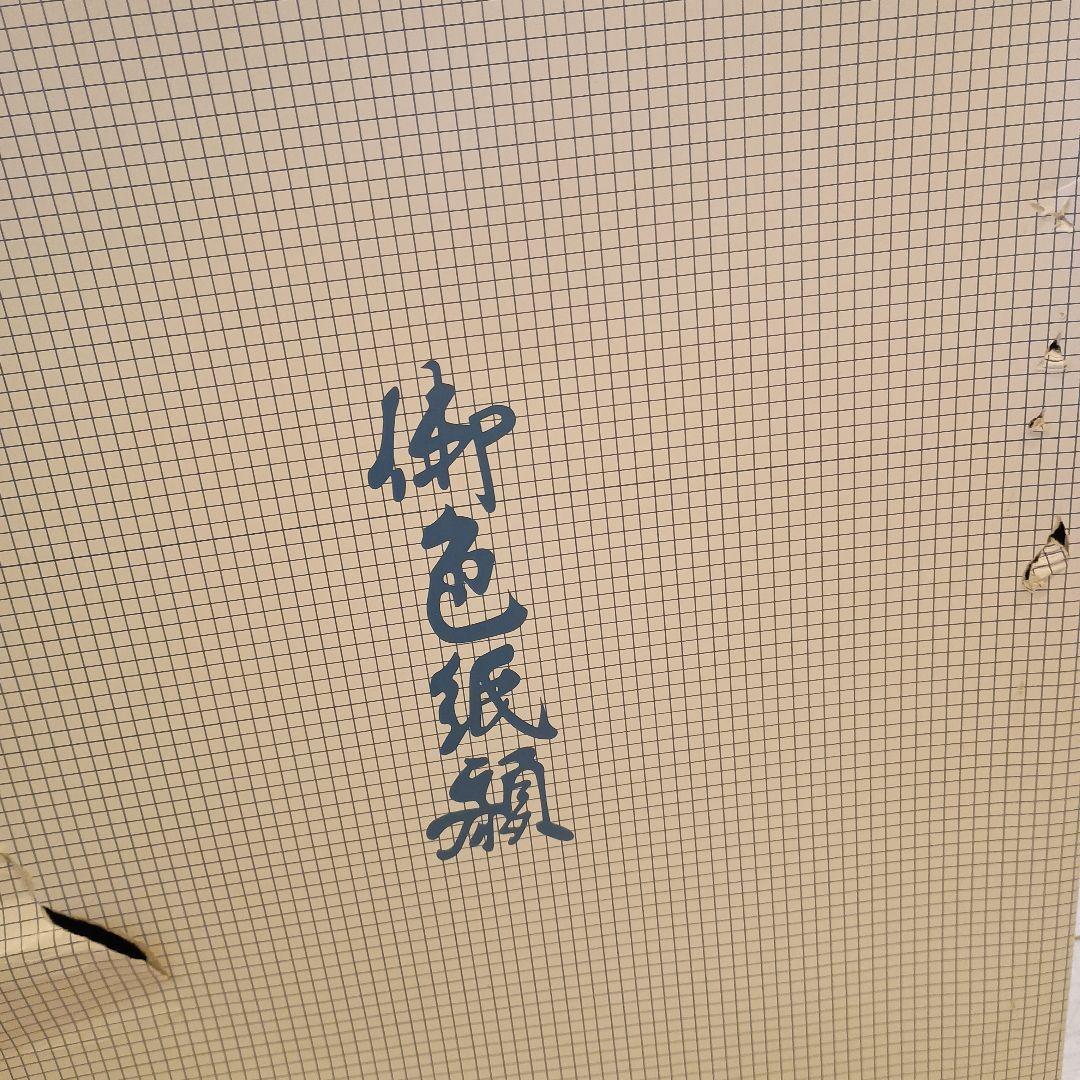 御色紙額